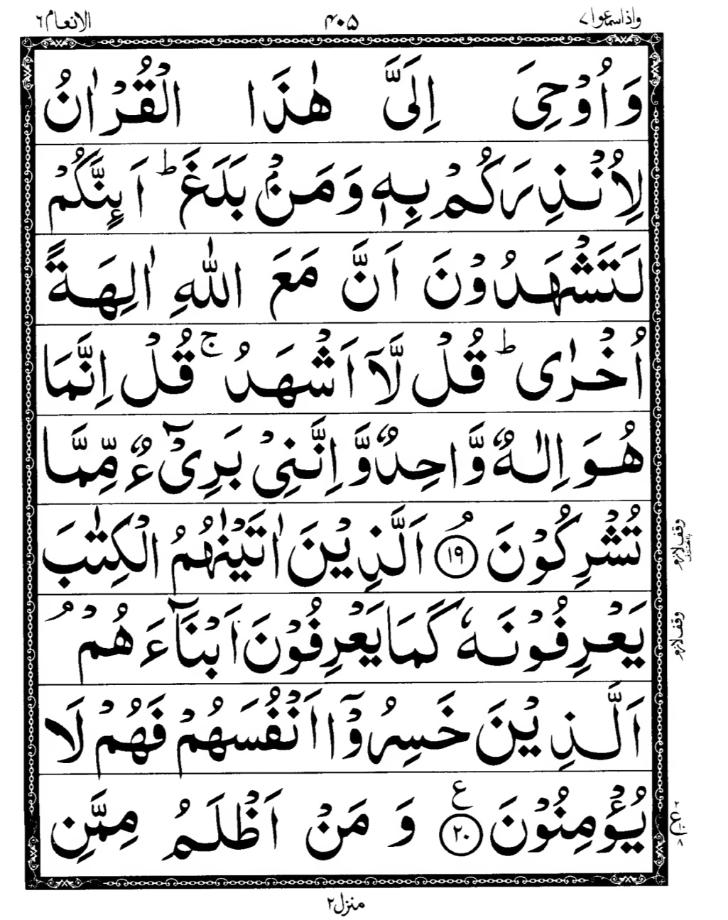 واذاسمعوا٧
۴۰۵
الانعام٦
وَ اُوْحِیَ اِلَیَّ هٰذَا الْقُرْاٰنُ
لِاُنْذِرَكُمْ بِهٖ وَ مَنْۢ بَلَغَ ؕ اَىِٕنَّكُمْ
لَتَشْهَدُوْنَ اَنَّ مَعَ اللّٰهِ اٰلِهَةً
اُخْرٰی ؕ قُلْ لَّاۤ اَشْهَدُ ۚ قُلْ اِنَّمَا
هُوَ اِلٰهٌ وَّاحِدٌ وَّ اِنَّنِیْ بَرِیْٓءٌ مِّمَّا
تُشْرِكُوْنَ ۘ ﴿۱۹﴾ اَلَّذِیْنَ اٰتَیْنٰهُمُ الْكِتٰبَ
یَعْرِفُوْنَهٗ كَمَا یَعْرِفُوْنَ اَبْنَآءَهُمْ ۘ
اَلَّذِیْنَ خَسِرُوْۤا اَنْفُسَهُمْ فَهُمْ لَا
یُؤْمِنُوْنَ ﴿۲۰﴾ ع وَ مَنْ اَظْلَمُ مِمَّنِ
وقف لازم
وقف لازم
منزل۲